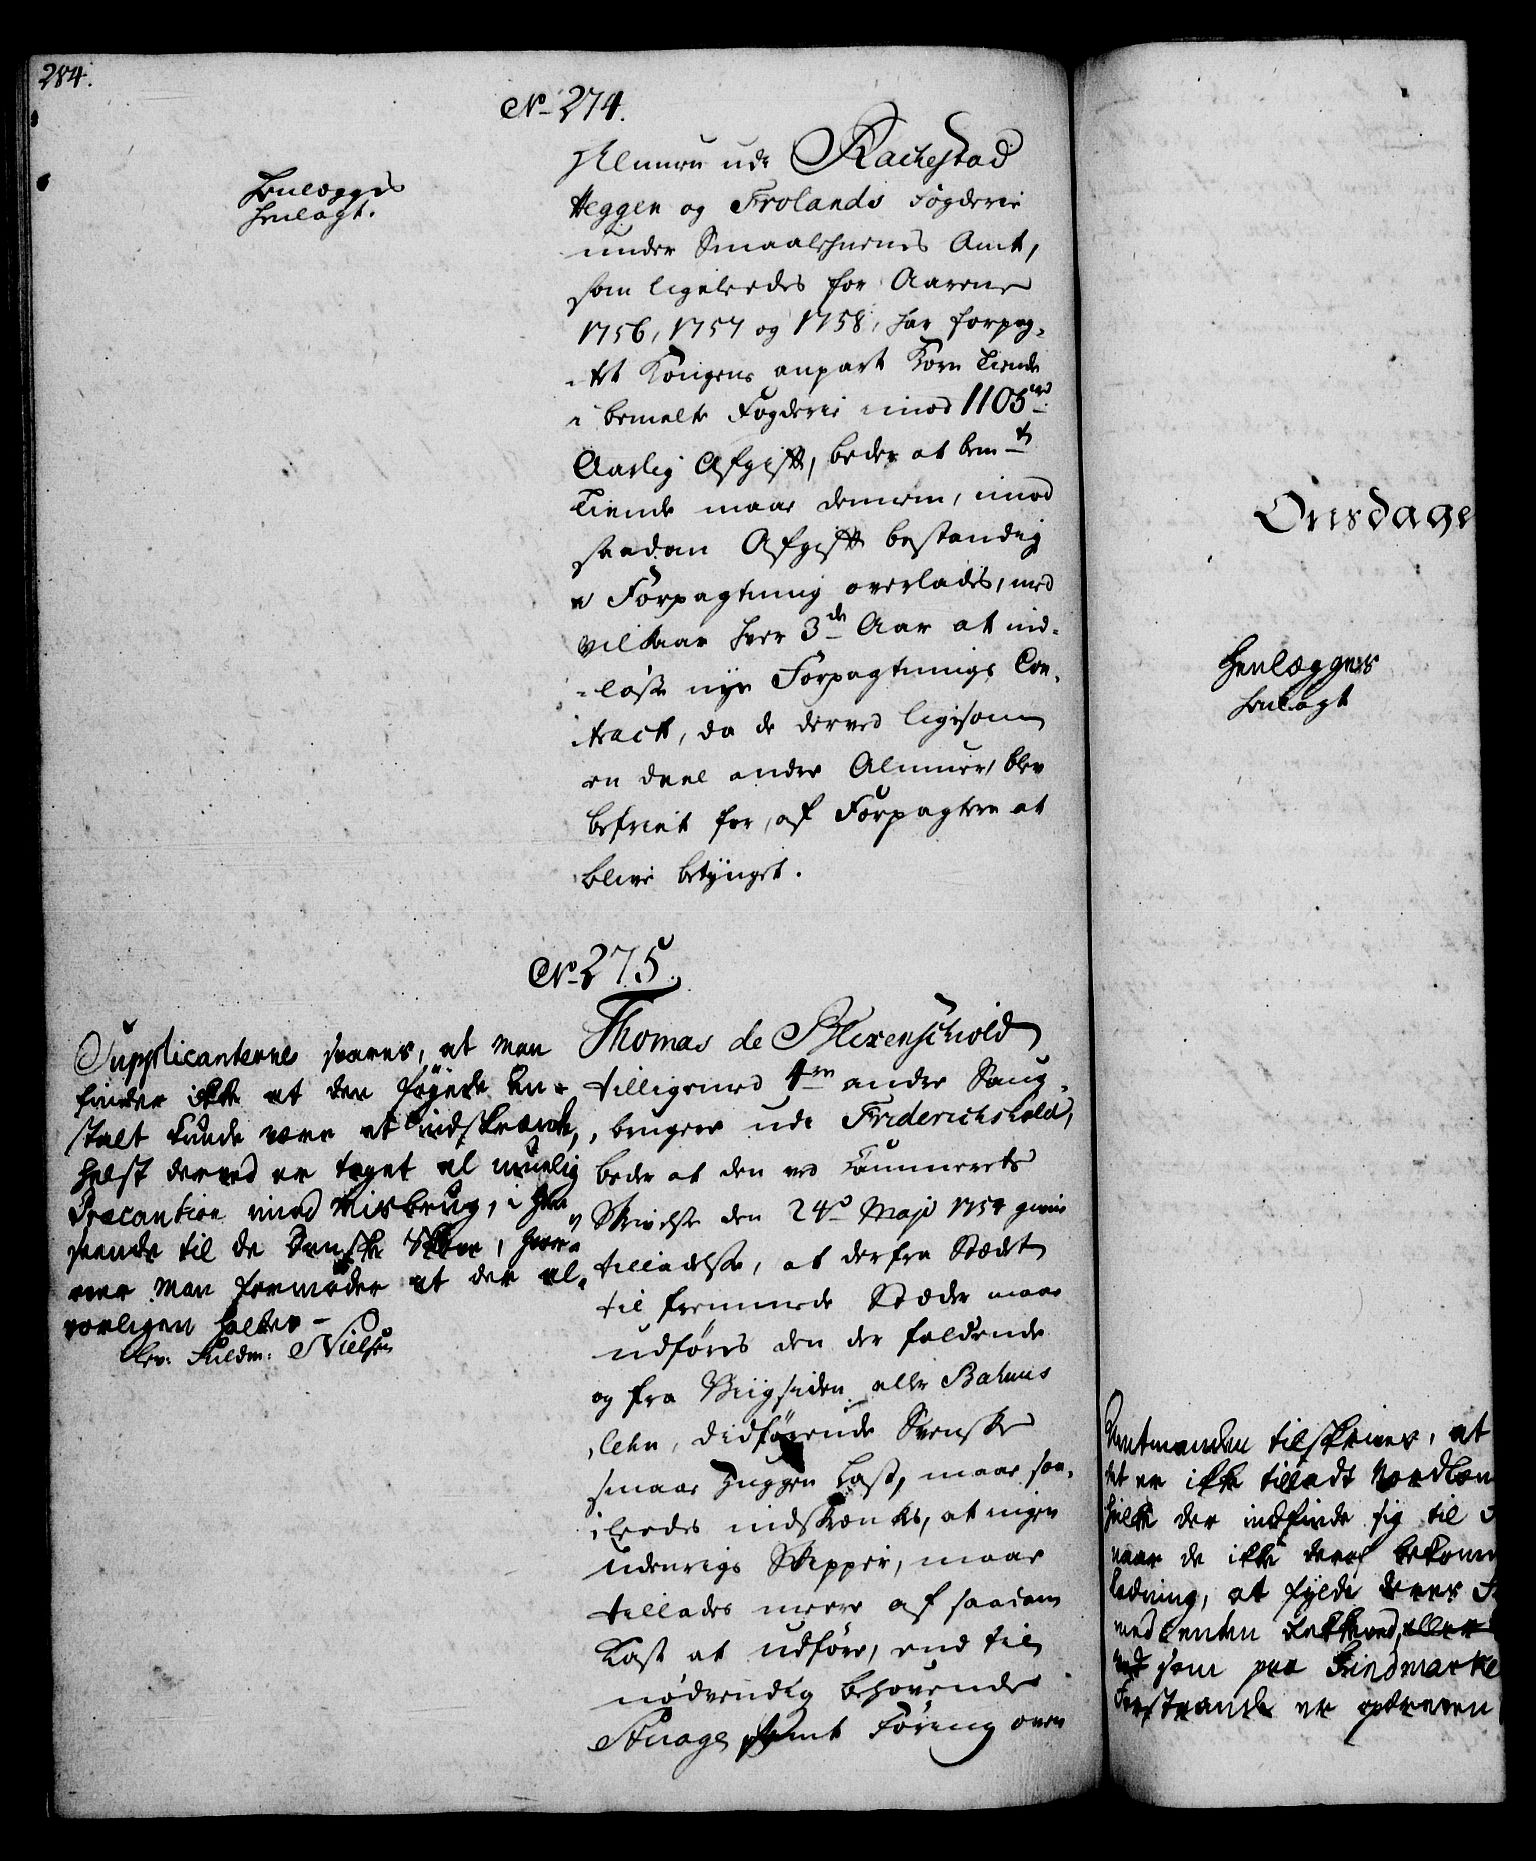 284.
No 274.
Henlægges
henlagt.
Almuen udi Rachestad
Heggen og Frolands Fogderie
under Smaalehnenes Amt,
som ligeledes for Aarene
1756, 1757 og 1758, har forpag-
-tet Kongens anpart Korn Tiende
i bemelte Fogderie imod 1105 rd
Aarlig Afgift, beder at bem te
Tiende maae dennem, imod
saadan Afgift bestandig
i Forpagtning overlades, med
Vilkaar hver 3de Aar at ind-
-løse nye Forpagtnings Con-
-tract, da de derved ligesom
en deel andre Almuer, blev
befriet for, af Forpagtere at
blive betynget.
No 275.
Supplicanterne svares, at man
finder ikke at den føyede An-
stalt kunde være at indskrænke,
helst derved er taget al muelig
Precaution imod Misbrug, i Hen-
seende til de Svenske Skibe, hvor-
over man formoder at der al-
vorligen holdes -
lev: Fuldm: Nielsen
Thomas de Blixenschiold
tilligemed 4re andre Saug-
-brugere udi Friderichshald,
beder at den ved Cammerets
Skrivelse den 24d Maji 1754 givne
tilladelse, at derfra Stædet
til fremmede Stæder maae
udføres den der faldende
og fra Viigsiden eller Bahuus
-lehn, didførende Svenske
smaae Huggen Last, maae saa-
-ledes indskrænkes, at ingen
udenrigs Skipper, maae
tillades meere af saadan
Last at udføre, end til
nødvendig behøvende
Stuage samt Føring oven
Onsdage
Henlægges
henlagt
Amtmanden tilskrives, at
det er ikke tilladt Nordlæn
hvilke der indfinde sig til
naar de ikke deraf bekomm
ladning, at fylde deres
med enten eller
som paa Findmarke
Forstrande er opdreven